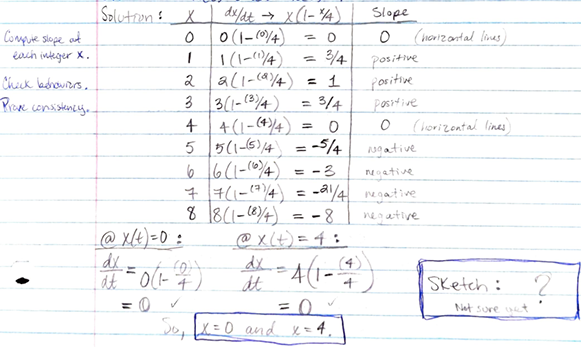 Solution: X dx/dt → x(1-x/4) Slope
0 0(1-(0)/4) = 0 0 (horizontal lines)
Compute slope at
each integer x.
1 1(1-(1)/4) = 3/4 positive
2 2(1-(2)/4) = 1 positive
Check behaviors.
3 3(1-(3)/4) = 3/4 positive
Prove consistency.
4 4(1-(4)/4) = 0 0 (horizontal lines)
5 5(1-(5)/4) = -5/4 negative
6 6(1-(6)/4) = -3 negative
7 7(1-(7)/4) = -21/4 negative
8 8(1-(8)/4) = -8 negative
@ x(t)=0 : @ x(t)=4 :
dx/dt = 0(1-(0)/4) dx/dt = 4(1-(4)/4)
= 0 ✓ = 0 ✓
So, x=0 and x=4.
Sketch: ?
Not sure yet